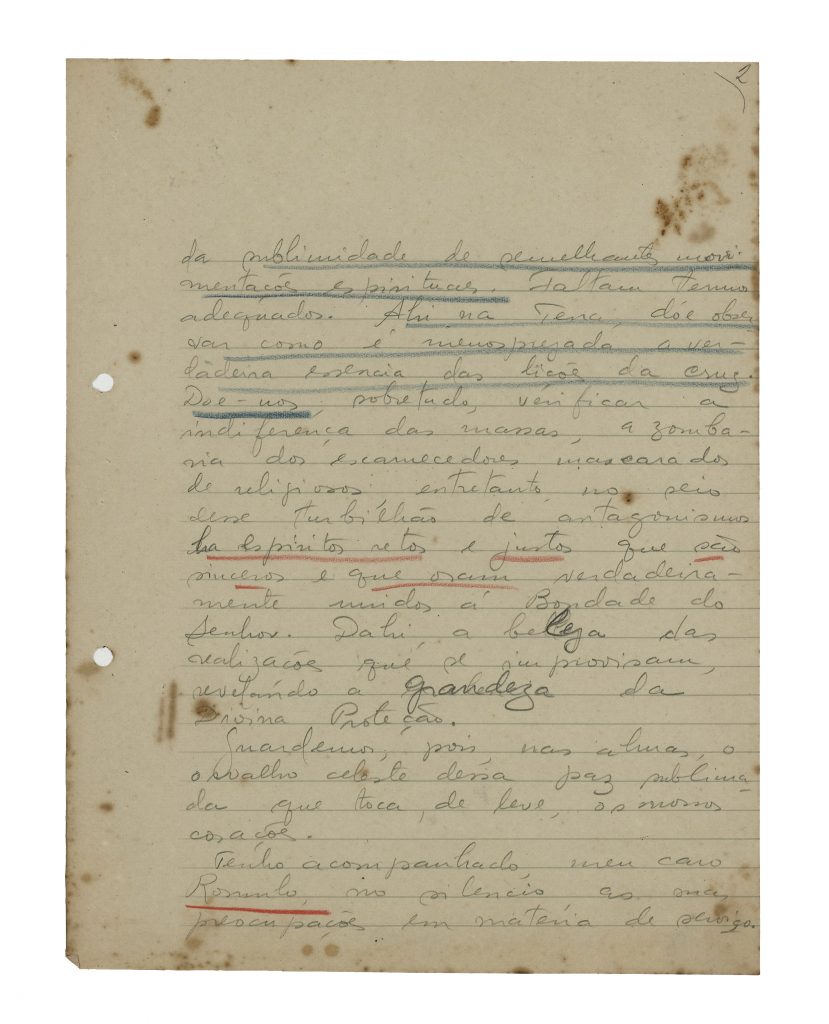 2
da sublimidade de semelhantes movi-
mentações espirituaes. Faltam termos
adequados. Ahi na Terra, dóe obser
var como é menosprezada a ver-
dadeira essencia das licões da cruz.
Doe-nos, sobretudo, verificar a
indiferença das massas, a zomba-
ria dos escarnecedores mascarados
de religiosos; entretanto, no seio
desse turbilhão de antagonismos
ha espiritos retos e justos que são
sinceros e que oram verdadeira-
mente unidos á Bondade do
Senhor. Dahi, a beleza das
realizações que se improvisam,
revelando a grandeza da
Divina Proteção.
Guardemos, pois, nas almas, o
orvalho celeste dessa paz sublima-
da que toca, de leve, os nossos
corações.
Tenho acompanhado, meu caro
Romulo, no silencio as suas
preocupações em materia de serviço.